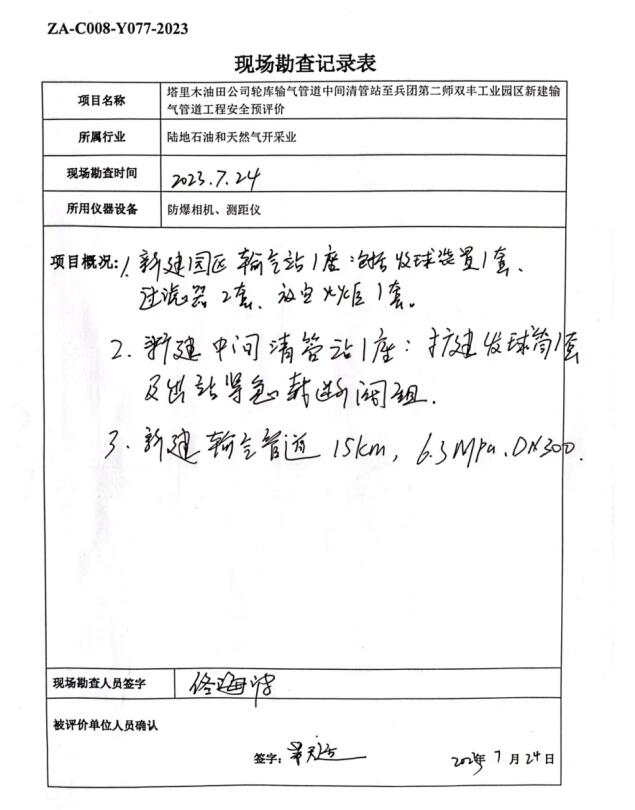 ZA-C008-Y077-2023
现场勘查记录表
项目名称
塔里木油田公司轮库输气管道中间清管站至兵团第二师双丰工业园区新建输
气管道工程安全预评价
所属行业
陆地石油和天然气开采业
现场勘查时间
2023.7.24
所用仪器设备
防爆相机、测距仪
项目概况:1. 新建园区输气站1座:包括发球装置1套、
过滤器2套、放空火炬1套。
2. 新建中间清管站1座:扩建发球筒1套
及出站紧急截断阀组.
3. 新建输气管道15km, 6.3MPa、DN300.
现场勘查人员签字
佟海
被评价单位人员确认
签字:
2023年7月24日